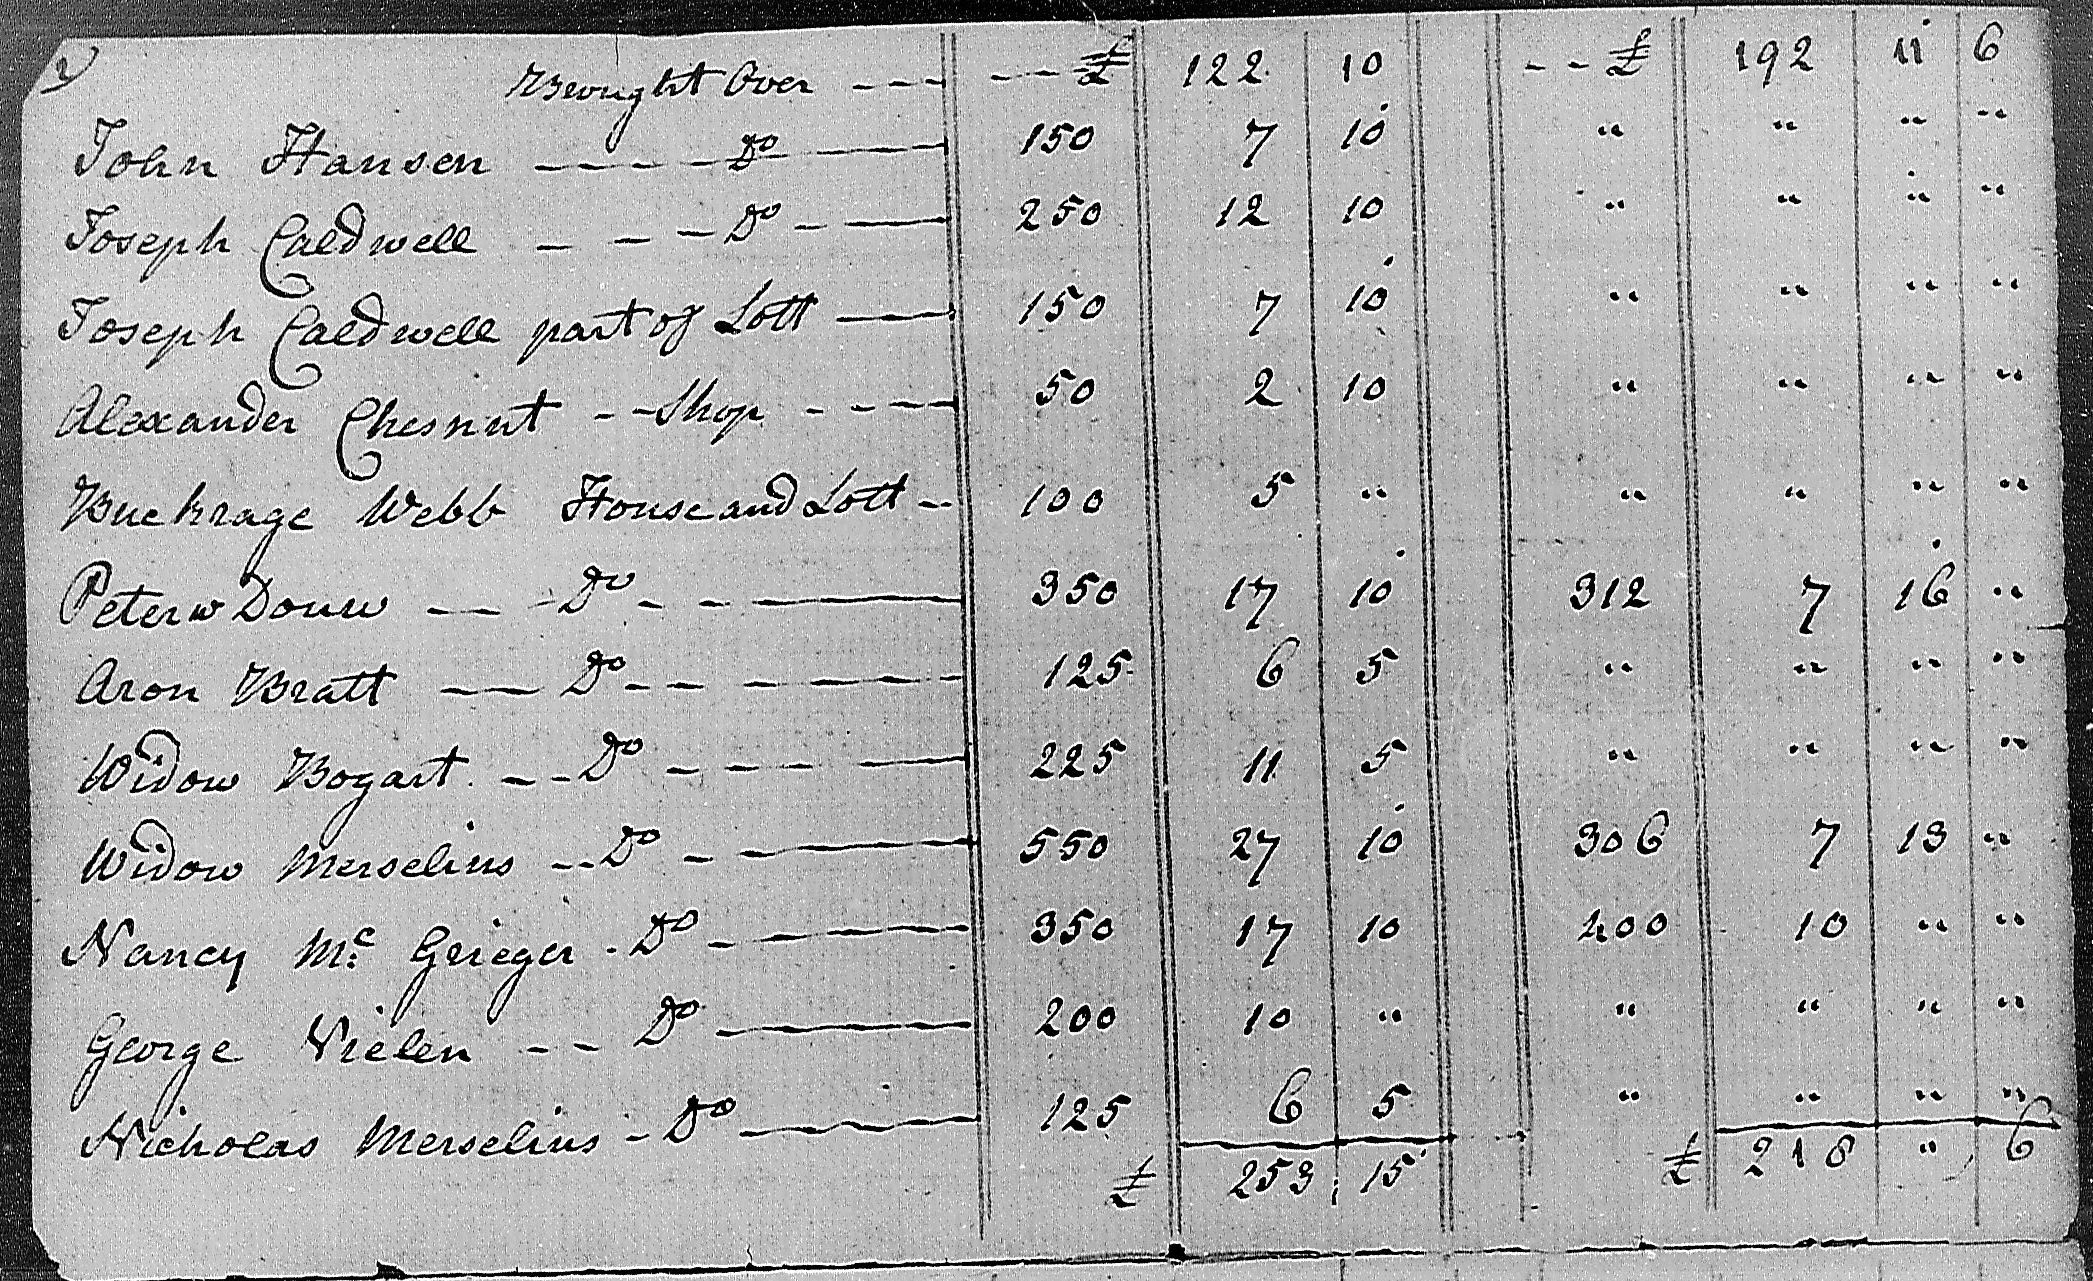 2)
Brought Over --- --- £ 122 10 -- £ 192 11 6
John Hansen ---- Do --- 150 7 10 " " " "
Joseph Caldwell --- Do -- 250 12 10 " " " "
Joseph Caldwell part of Lott — 150 7 10 " " " "
Alexander Chesnut -- Shop ---- 50 2 10 " " " "
Buckrage Webb House and Lott -- 100 5 " " " " "
Peter W Douw --- Do --- 350 17 10 312 7 16 "
Aron Bratt -- Do ---- 125 6 5 " " " "
Widow Bogart -- Do ---- 225 11 5 " " " "
Widow Merselius -- Do -- 550 27 10 306 7 13 "
Nancy Mc Grieger - Do -- 350 17 10 400 10 " "
George Vielen -- Do — 200 10 " " " " "
Nicholas Merselius - Do — 125 6 5 " " " "
£ 253 15 £ 218 " 6